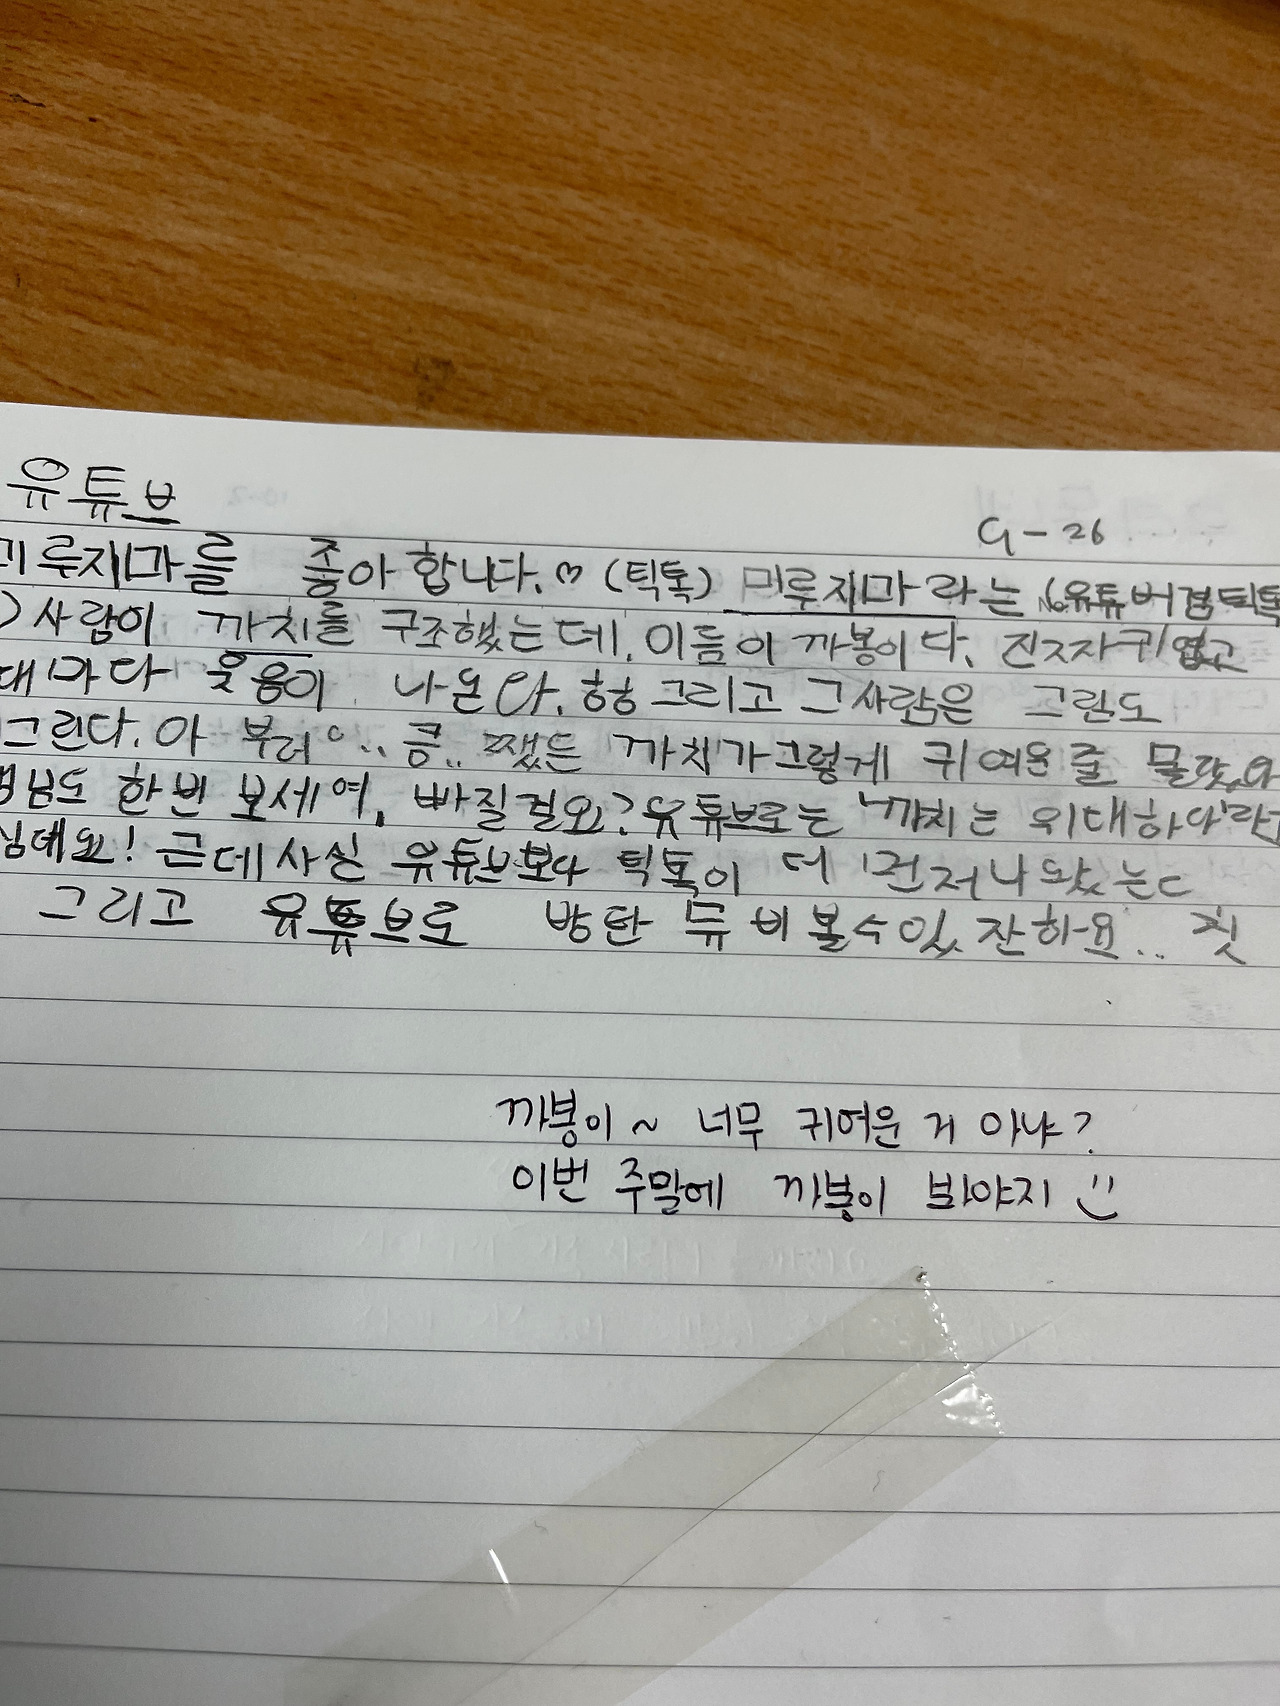 유튜브
9-26
미루지마를 좋아합니다.♡ (틱톡) 미루지마라는 (유튜버겸틱톡
)사람이 까치를 구조했는데, 이름이 까봉이다. 진짜귀엽고
때마다 웃음이 나온다. 헣헣 그리고 그사람은 그림도
그린다. 아 부러ㅇ.. 큼.. 쨌든 까치가그렇게 귀여운줄 몰랐
한번 보세여, 빠질걸요? 유튜브로는 '까치는 위대하다'란
심데요! 근데사실 유튜브보다 틱톡이 더 먼저나왔는ㄷ
그리고 유튜브로 방탄 뮤비볼수있잖하요.. 칫
까봉이~ 너무 귀여운 거 아냐?
이번 주말에 까봉이 봐야지 :)